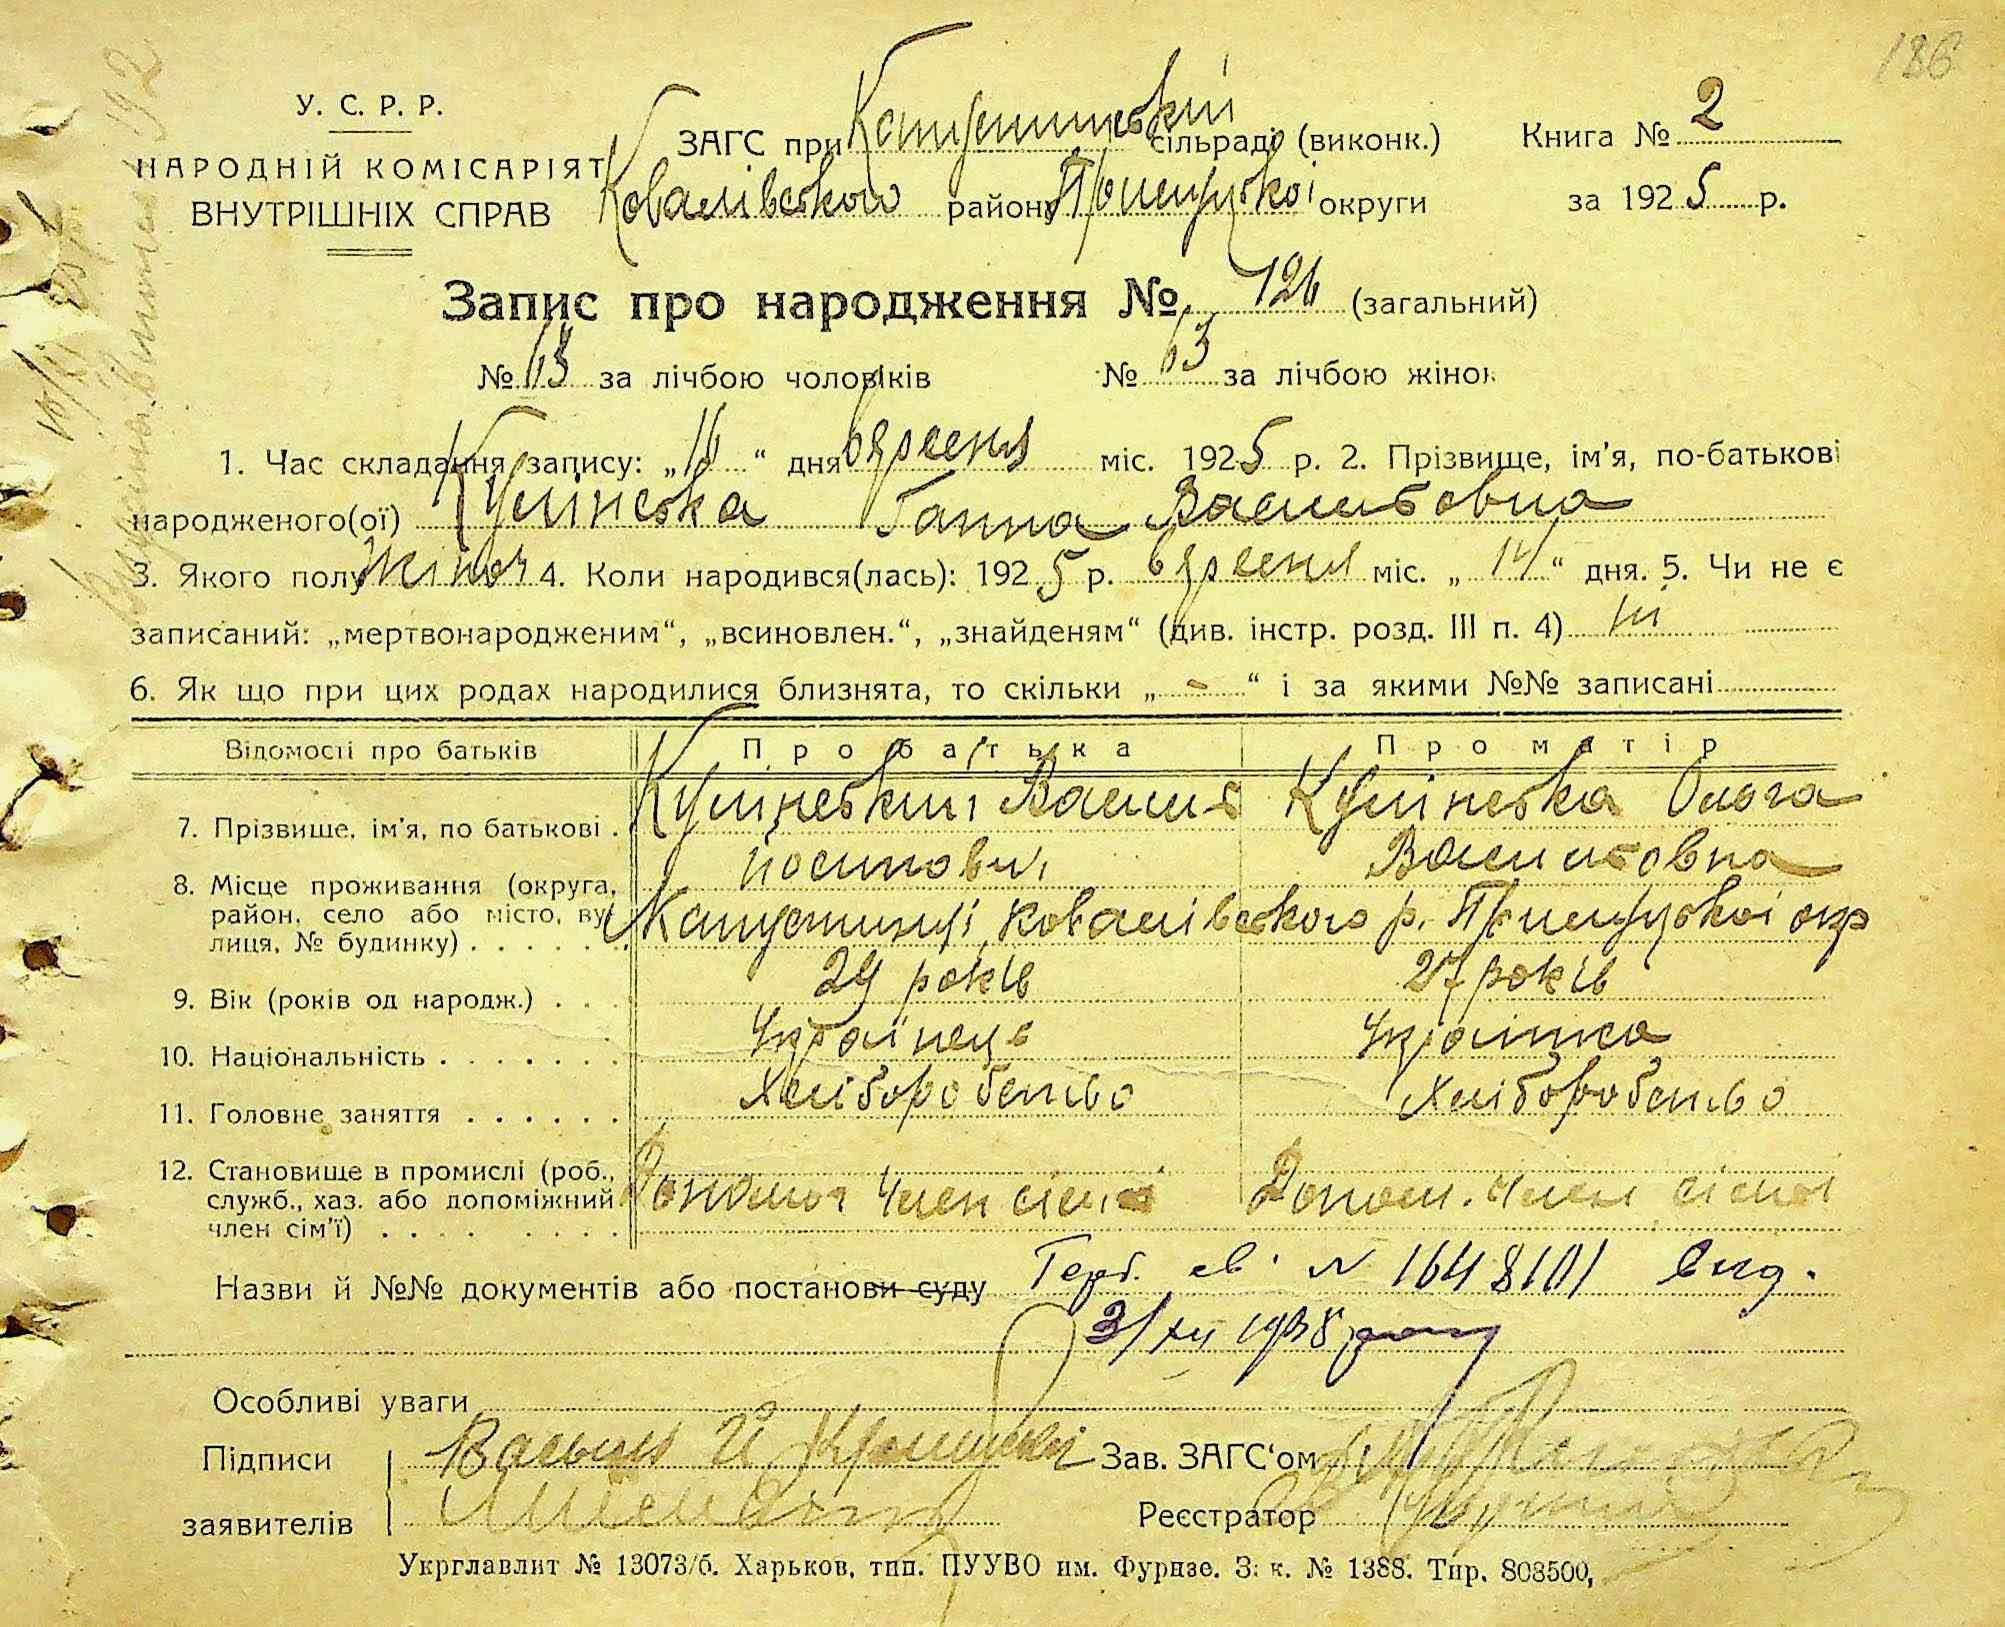 186
У. С. Р. Р.
НАРОДНІЙ КОМІСАРІЯТ
ВНУТРІШНІХ СПРАВ
ЗАГС при сільраді (виконк.) Книга № 2
Ковалівського району Прилуцької округи за 1925 р.
Запис про народження № 126 (загальний)
№ 63 за лічбою чоловіків № 63 за лічбою жінок
1. Час складання запису: „16“ дня вересня міс. 1925 р. 2. Прізвище, ім'я, по-батькові
народженого(ої) Ганна Васильовна
3. Якого полу жіноч 4. Коли народився(лась): 1925 р. вересня міс. „14“ дня. 5. Чи не є
записаний: „мертвонародженим“, „всиновлен.“, „знайденям“ (див. інстр. розд. III п. 4) ні
6. Як що при цих родах народилися близнята, то скільки „-“ і за якими №№ записані
Відомості про батьків Про батька Про матір
7. Прізвище, ім'я, по батькові . Василь Ольга
Йосипович Васильовна
8. Місце проживання (округа, район, село або місто, вулиця, № будинку) . . . . . . Капустинці, Ковалівського р. Прилуцької окр
9. Вік (років од народж.) . . . 29 років 27 років
10. Національність . . . . . . . Українець Українка
11. Головне заняття . . . . . . Хліборобство Хліборобство
12. Становище в промислі (роб., служб., хаз. або допоміжний член сім'ї) . . . . . . . . член сімї Допом. член сімї
Назви й №№ документів або постанови суду Герб. св. № 1648101 вид.
3/XII 1938 року
Особливі уваги
Підписи
заявителів
Зав. ЗАГС‘ом
Реєстратор
Укрглавлит № 13073/б. Харьков, тип. ПУУВО им. Фрунзе. Зак. № 1388. Тир. 803500,